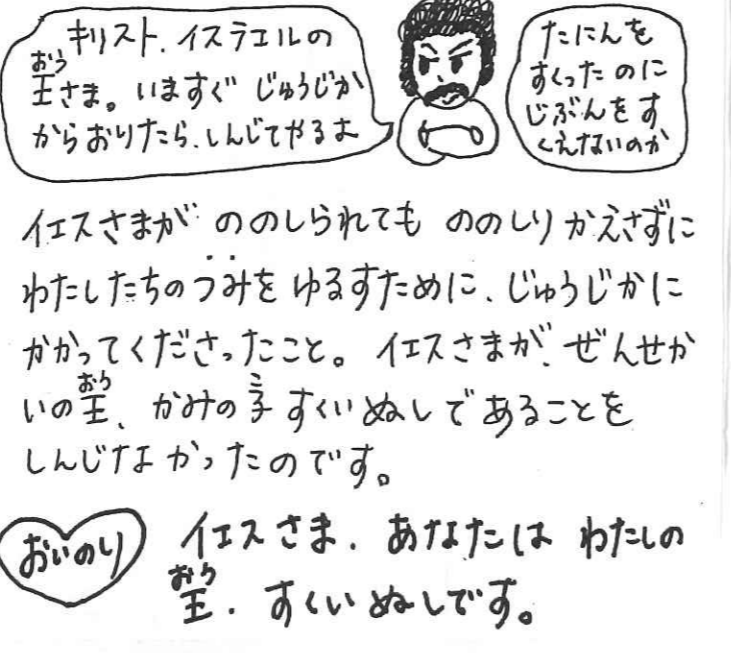 キリスト、イスラエルの
王さま。いますぐ じゅうじか
からおりたら、しんじてやるよ
おう
たにんを
すくったのに
じぶんをす
くえないのか
イエスさまが ののしられても ののしりかえさずに
わたしたちのつみを ゆるすために、じゅうじかに
かかってくださったこと。イエスさまが、ぜんせか
おう こ
いの王、かみの子 すくいぬしであることを
しんじなかったのです。
おいのり
イエスさま、あなたは わたしの
おう
王、すくいぬしです。